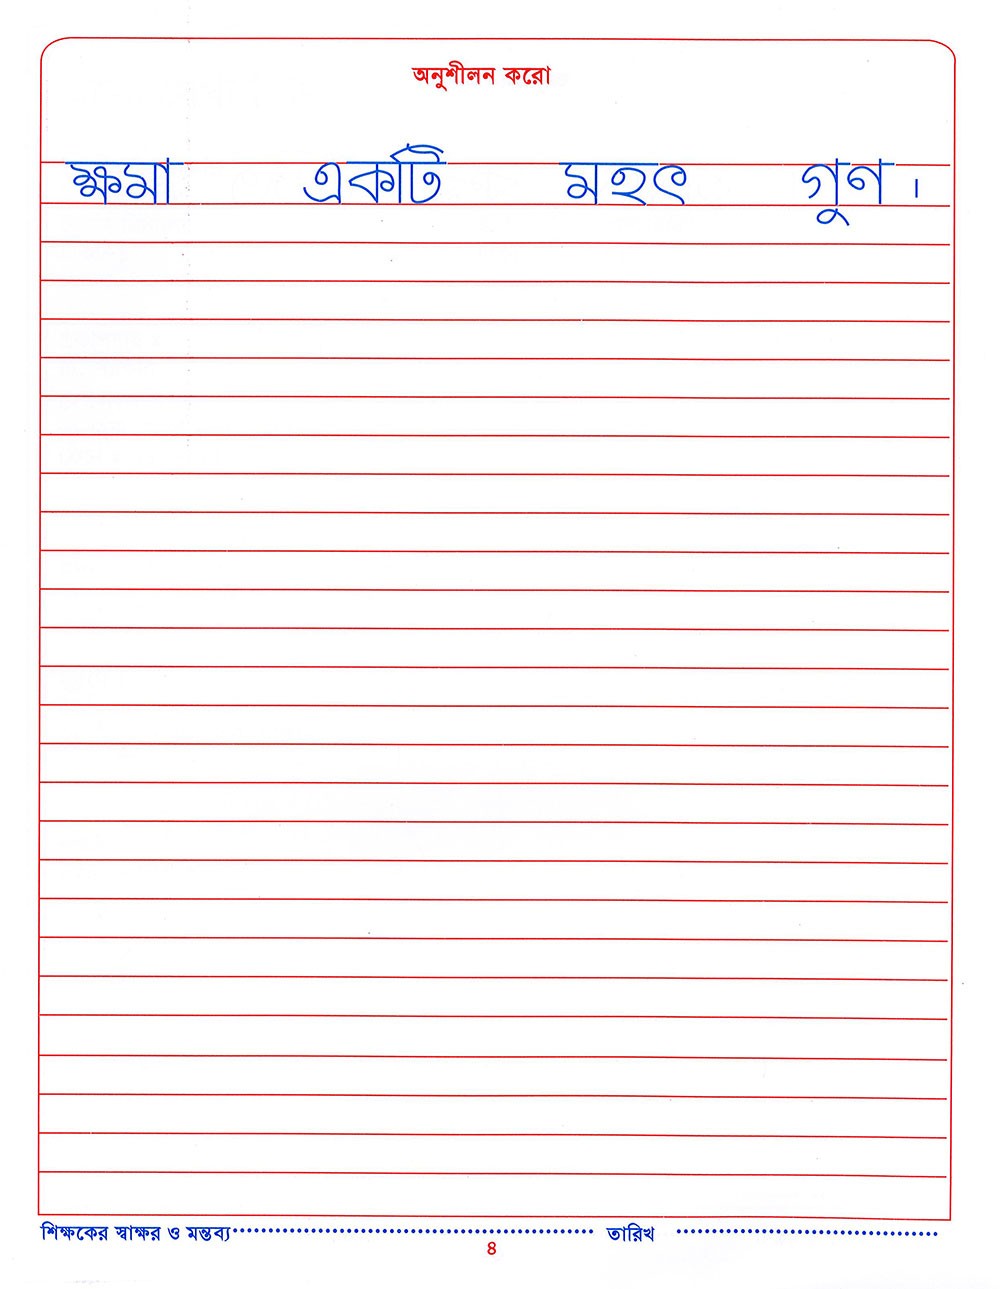 অনুশীলন করো
ক্ষমা একটি মহৎ গুণ ।
শিক্ষকের স্বাক্ষর ও মন্তব্য.......................................................... তারিখ ..........................................
৪